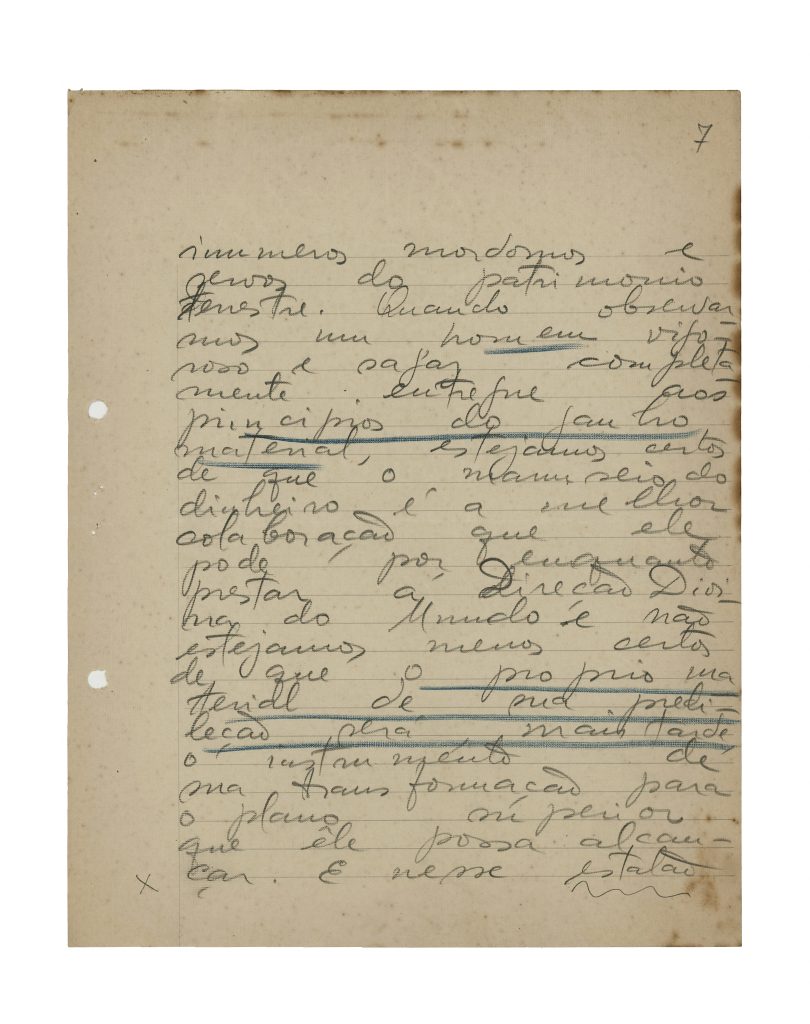 7
inumeros mordomos e
servos do patrimonio
terrestre. Quando observar
mos um homem vigo-
roso e sagaz completa
mente entregue aos
principios do ganho
material, estejamos certos
de que o manuseio do
dinheiro é a melhor
colaboração que ele
pode, por enquanto
prestar á Direcão Divi-
na do Mundo e não
estejamos menos certos
de que o proprio ma
terial de sua predi-
leção será mais tarde
o instrumento de
sua transformacão para
o plano superior
que êle possa alcan-
çar. E nesse estalão
x